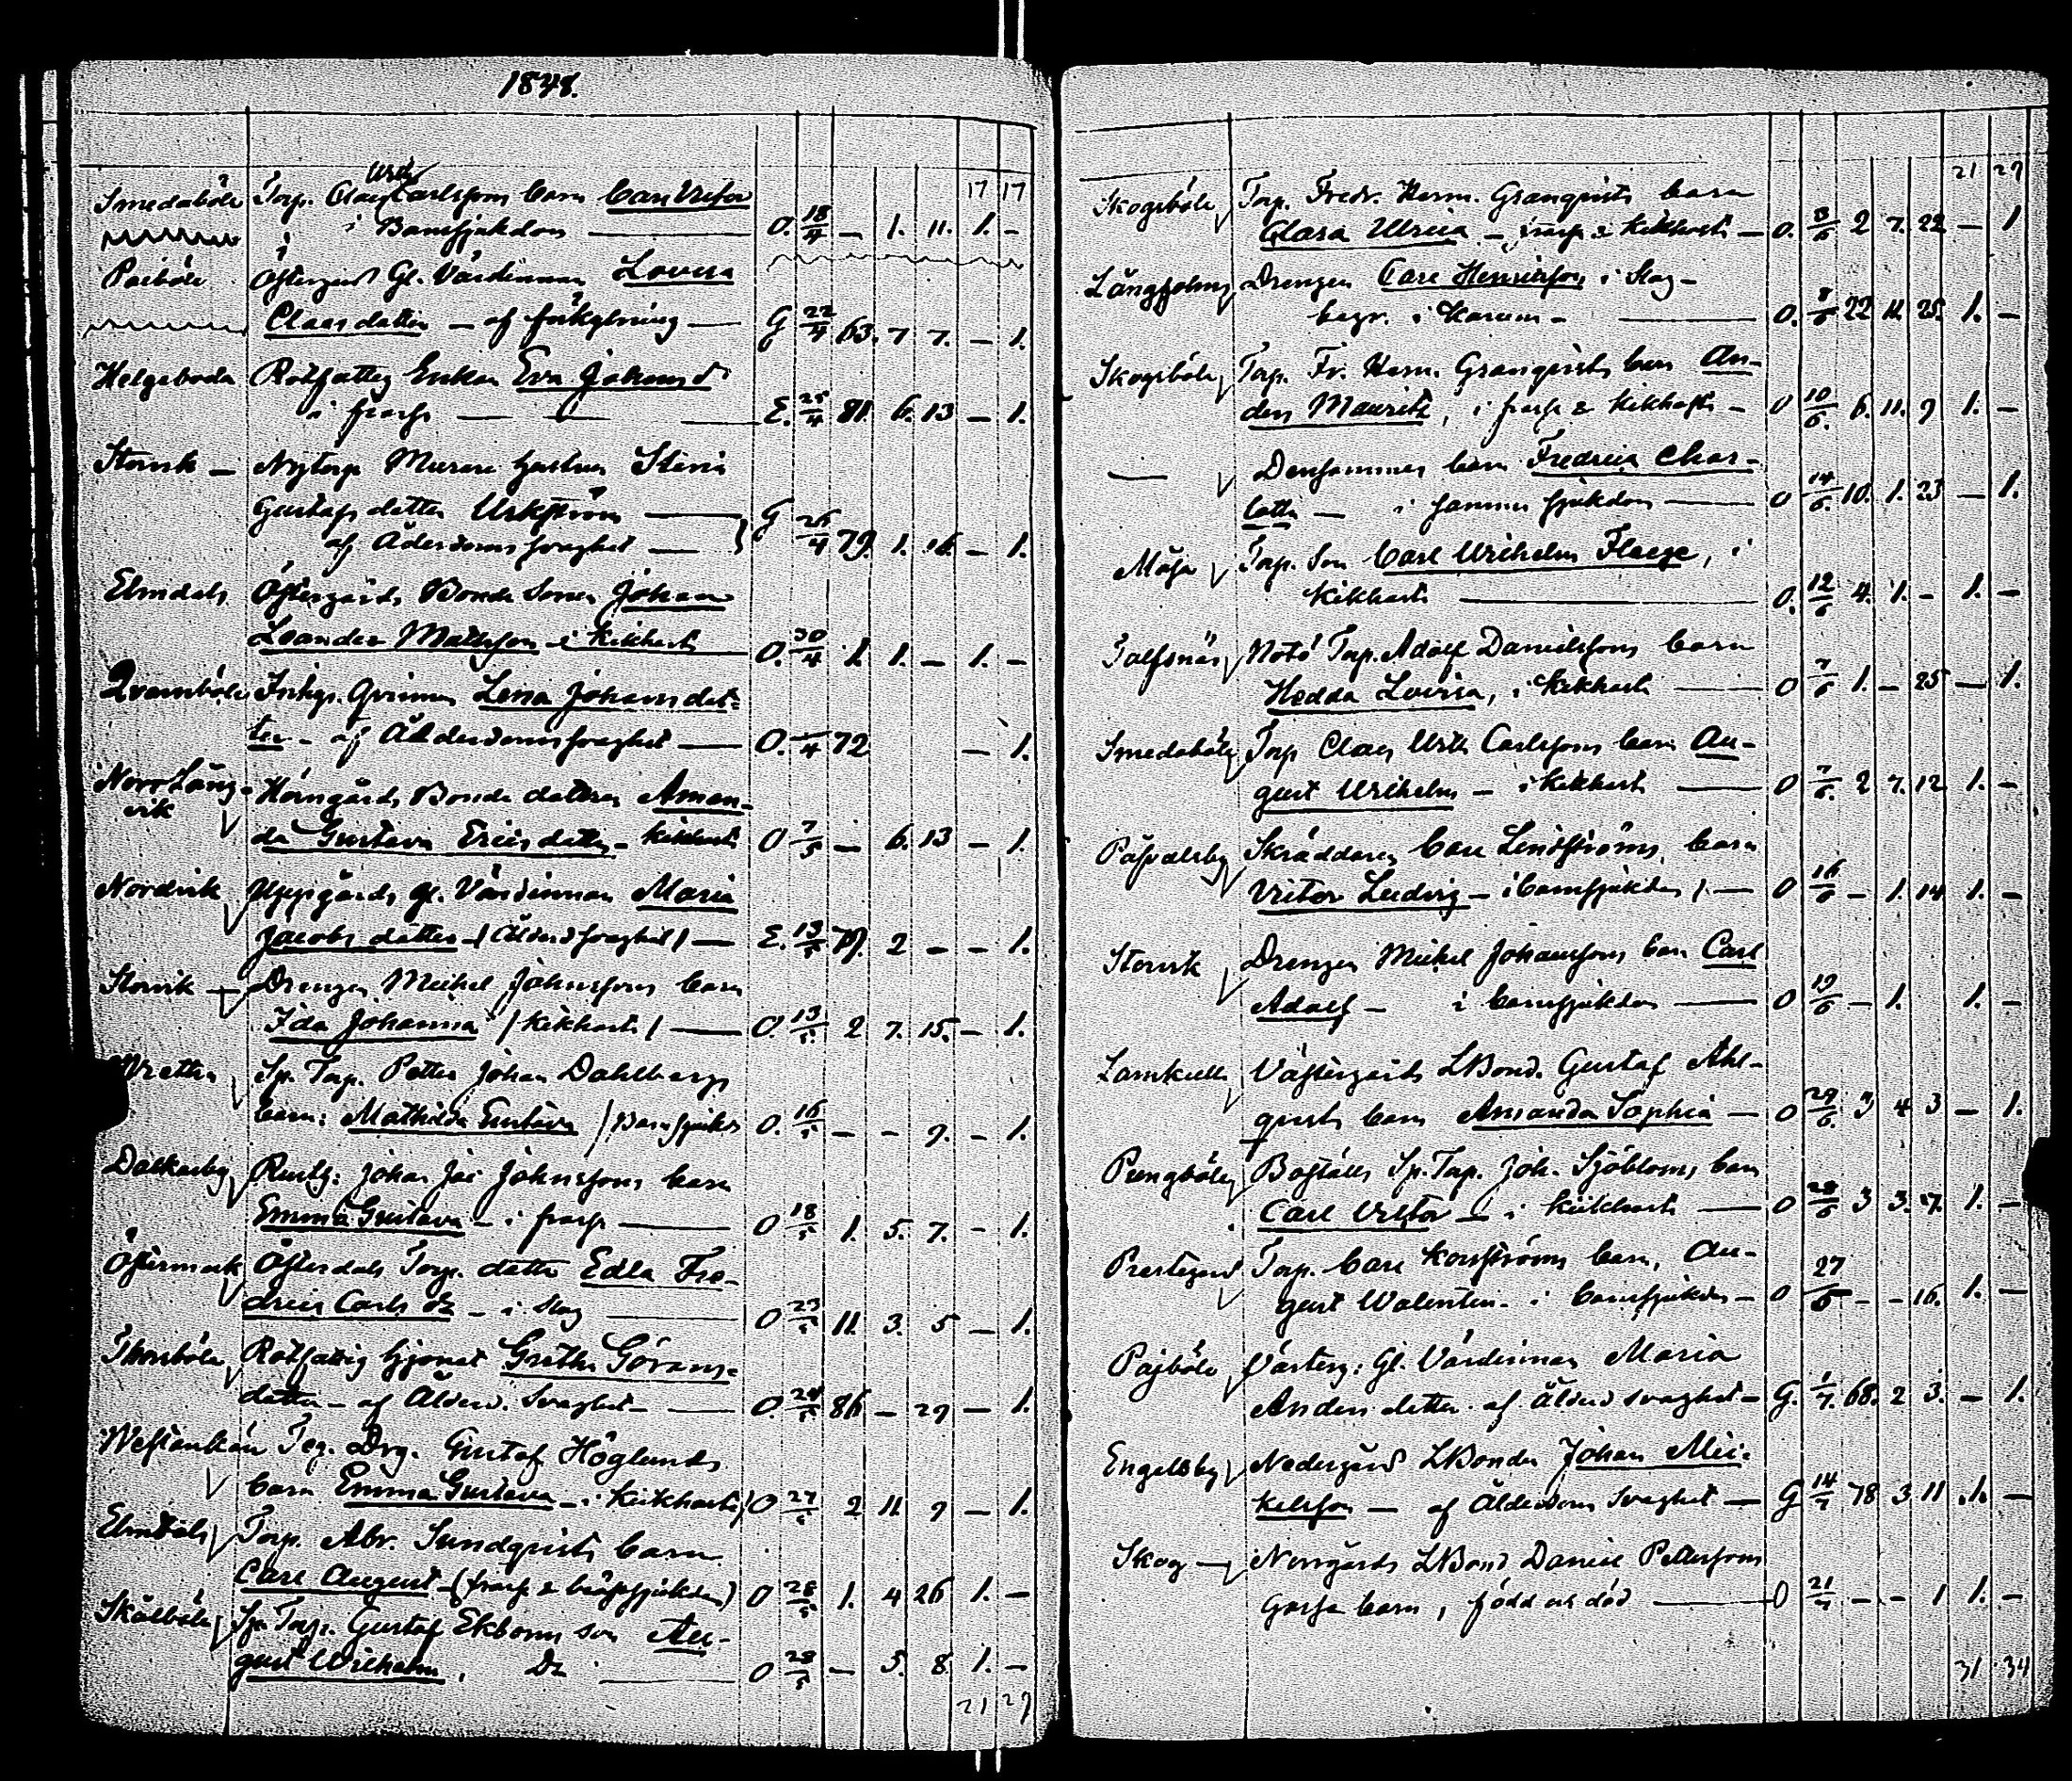 1848.
17 17
Smedsböle Torp. Claes Wilh. Carlssons barn Carl Victor
i Barnsjukdom — O. 18/4 — 1. 11. 1. —
Paiböle Östergård Gl. Värdinnan Lovisa
Claes datter — af förkylning — G 22/4 63. 7 7. — 1.
Helgeboda Rotfattig Enkan Eva Johans d:r
i frossa — E. 25/4 81. 6. 13 — 1.
Storvik — Nytorp Murare hustrun Stina
Gustafs datter Uhrström —
af Ålderdomssvaghet — G 26/4 79. 1. 16. — 1.
Elmdals Östergårds Bonde Sonen Johan
Leander Mattsson — i kikhosta O. 30/4 1. 1. — 1. —
Qvarnböle Inhys. Qvinnan Lena Johansdat-
ter — af Ålderdomssvaghet — O. /4 72 — 1.
Norr Lång-
vik Horngårds Bonde dottren Aman-
da Gustava Ericsdotter — kikhosta O 7/5 — 6. 13 — 1.
Nordvik Uppgårds gl. Värdinnan Maria
Jacobs datter — (Ålderd. svaghet) — E. 13/5 79. 2 — — 1.
Storvik — Drengen Mickel Johanssons barn
Ida Johanna / kikhosta / — O. 13/5 2 7. 15. — 1.
Wretta Sp. Torp. Petter Johan Dahlbergs
barn: Mathilda Gustava / Barnsjukd. O. 16/5 — — 9. — 1.
Dalkarby Rustg: Johan Jac Johnssons barn
Emma Gustava — i frossa — O 18/5 1. 5. 7. — 1.
Östermark Österdals Torp. datter Edla Fre-
drica Carls dr — i slag — O 23/5 11. 3. 5 — 1.
Thorsböle Rotfattig hjonet Greta Görans-
datter — af Ålderd. Svaghet — O. 24/5 86 — 29 — 1.
Westankärr Teg. Drg. Gustaf Höglunds
barn Emma Gustava — i kikhosta O 27/5 2 11 9 — 1.
Elmdals Torp. Abr. Sundqvists barn
Carl August — (frossa & bröstsjukdom) O 28/5 1. 4 26 1. —
Skålböle Sp. Torp. Gustaf Ekboms son Au-
gust Wilhelm, Do — O 28/5 — 5. 8. 1. —
21 29
21 29
Skogsböle Torp. Fredr. Herm. Granqvists barn
Clara Ulrica — i frossa & kikhosta — O. 8/6 2 7. 22 — 1.
Långholms Drengen Carl Henriksson i Slag —
begr. i Karuna — O. 8/6 22 11. 25. 1. —
Skogsböle Torp. Fr. Herm. Granqvists barn An-
ders Mauritz, i frossa & kikhosta — O 10/6. 6. 11. 9 1. —
— Densammes barn Fredrica Char-
lotta — i samma sjukdom — O 14/6. 10. 1. 23 — 1.
Måsa Torp. Son Carl Wilhelm Flege, i
kikhosta — O. 12/6 4. 1. — 1. —
Tolfsnäs Notö Torp. Adolf Danielssons barn
Hedda Lovisa, i kikhosta — O 7/6 1. — 25 — 1.
Smedsböle Torp Claes Wilh Carlssons barn Au-
gust Wilhelm — i kikhosta — O 7/6. 2 7. 12 1. —
Påfvalsby Skräddaren Carl Lindströms barn
Victor Ludvig — i barnsjukdom / — O 16/6 — 1. 14 1. —
Storvik Drengen Mickel Johanssons barn Carl
Adolf — i barnsjukdom — O 19/6 — 1. 1. —
Lamkulla Västergårds LBond. Gustaf Ahl-
qvists barn Amanda Sophia — O 29/6. 3 4 3 — 1.
Pungböle Boställs Sp. Torp. Joh. Sjöbloms barn
Carl Viktor — i kikhosta — O 28/6 3 3. 7. 1. —
Prestegård Torp. Carl Korsströms barn, Au-
gust Walentin — i barnsjukdom — O 27/6 — — 16. 1. —
Pajböle Västerg: Gl. Värdinnan Maria
Anders datter af Ålderd svaghet — G. 1/7. 68. 2 3. — 1.
Engelsby Nedergård LBonden Johan Mic-
kelsson — af Ålderdoms Svaghet — G 14/7 78 3 11 1. —
Skog — Norrgårds LBond Daniel Petterssons
Gosse barn, född och död — O 21/7 — — 1 1. —
31 34